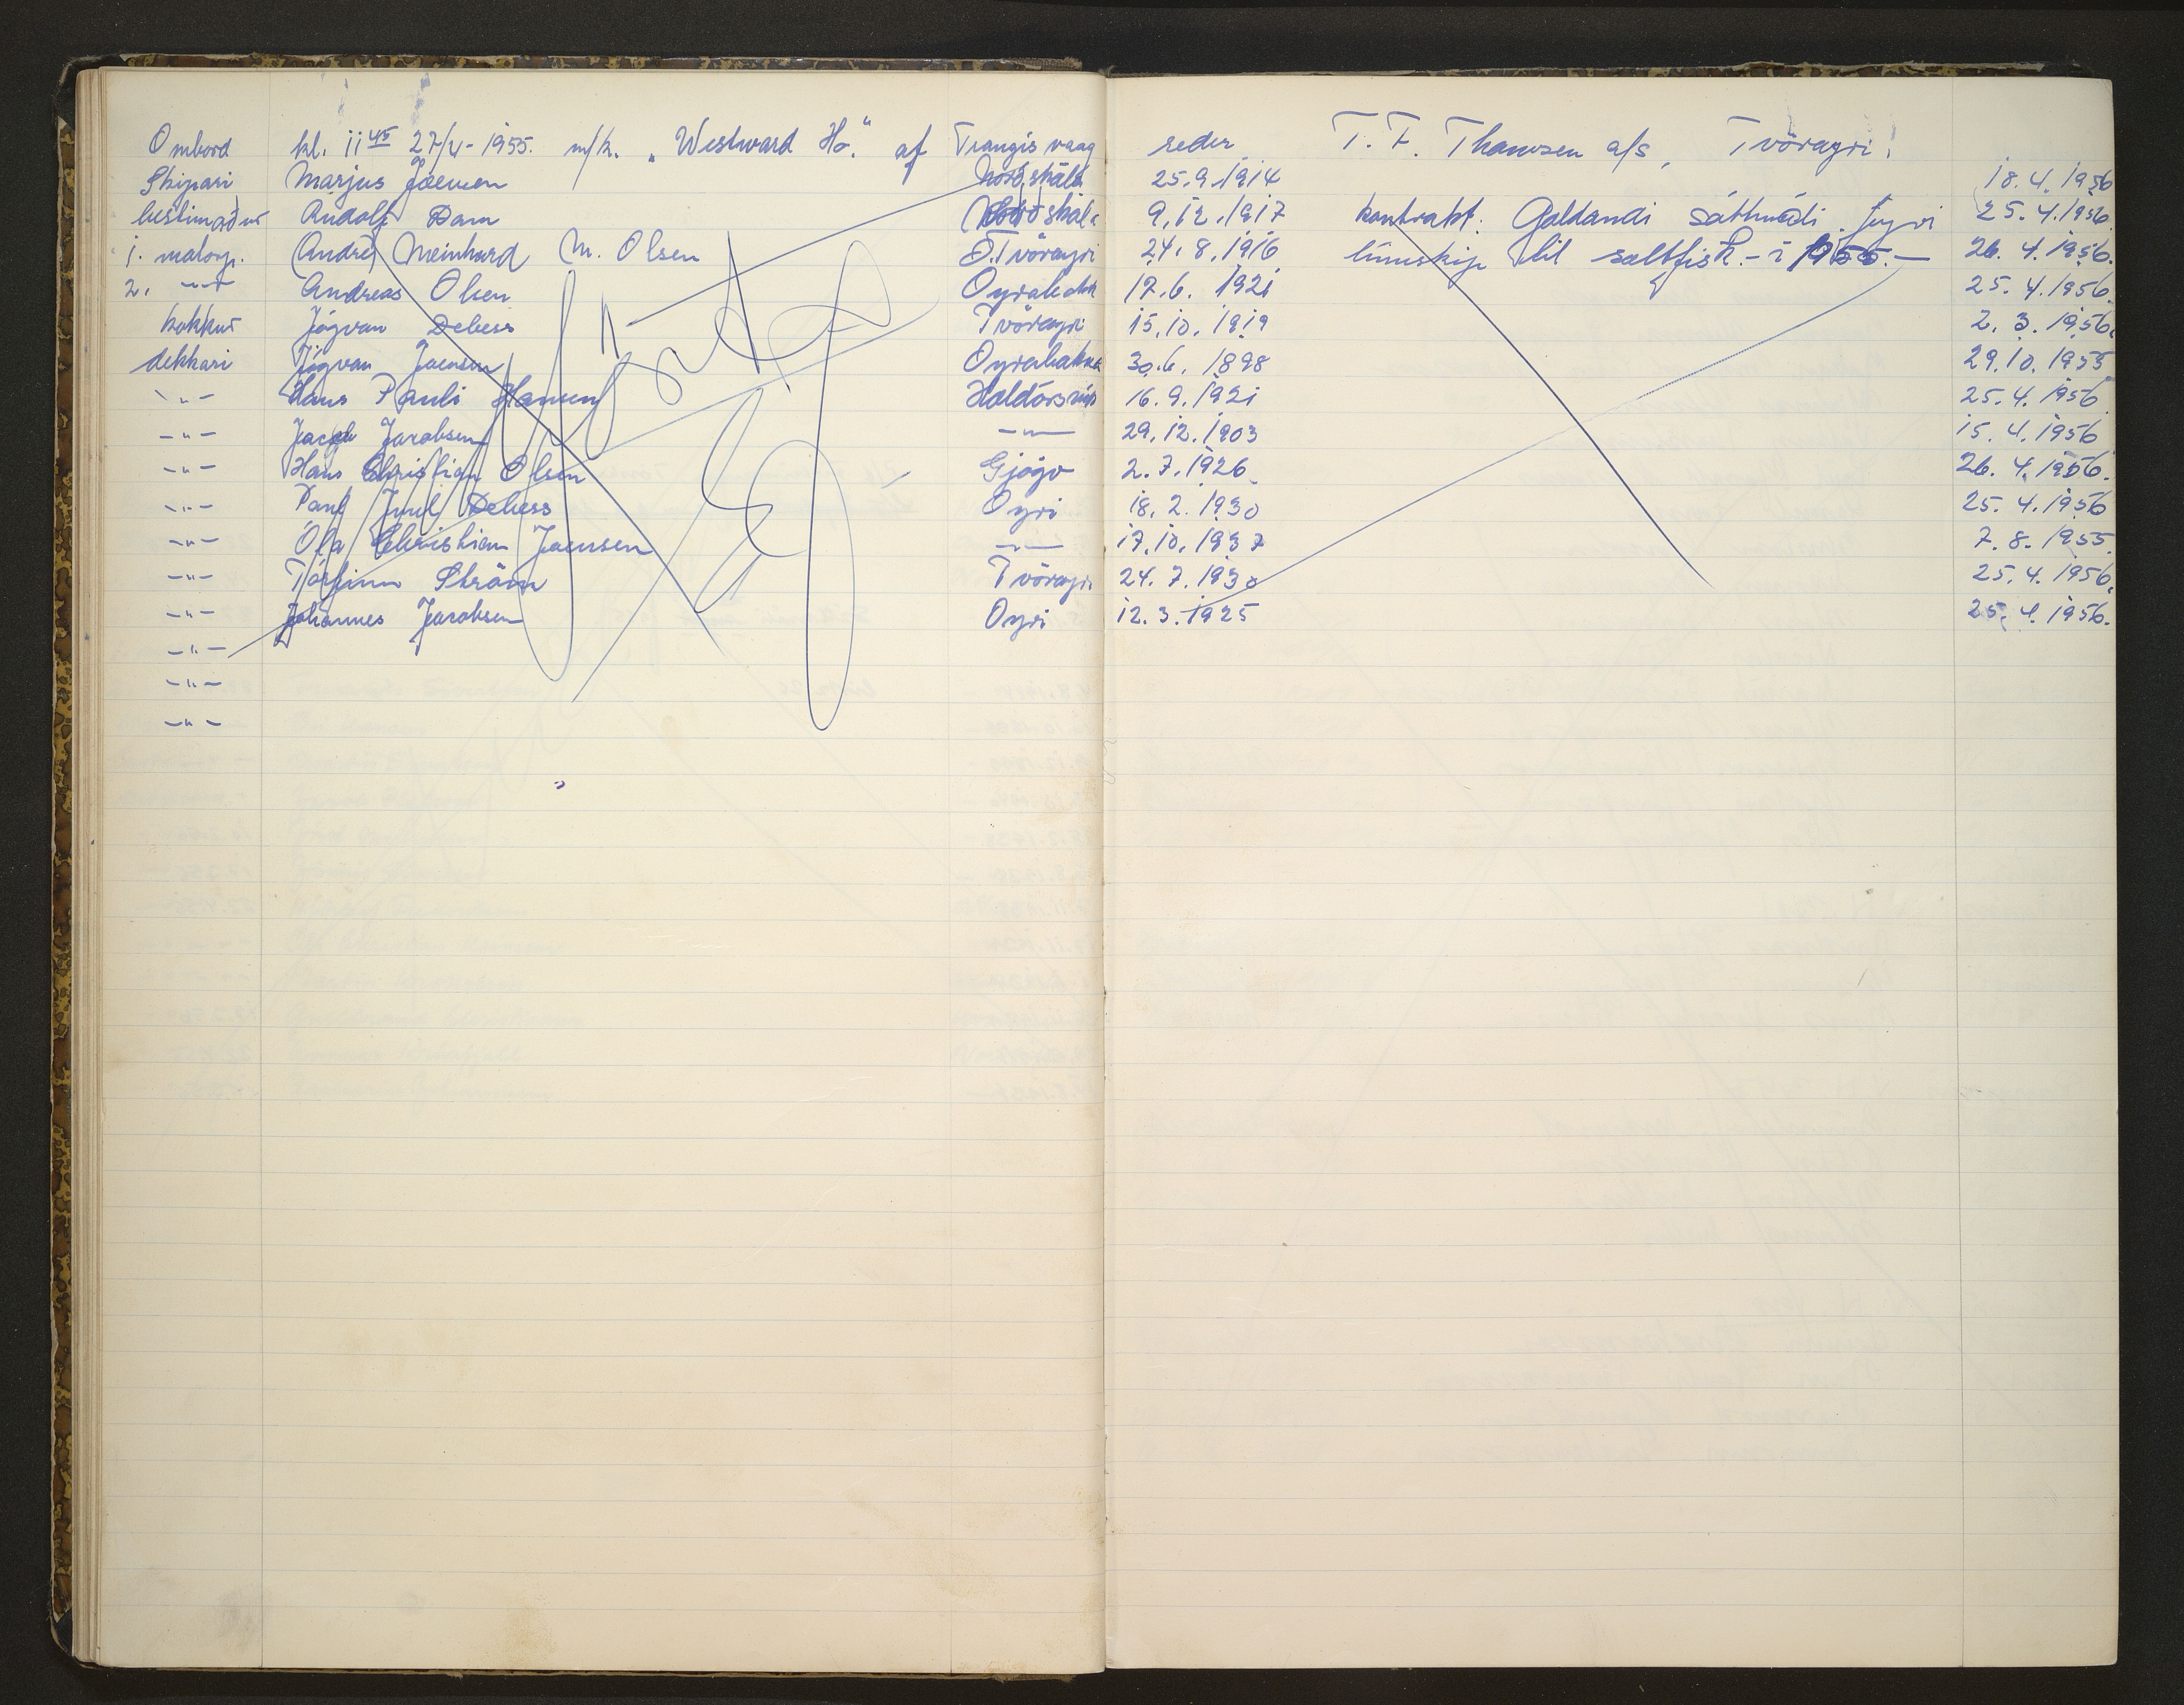 Ombord kl. 11 45 27/4-1955. m/k. „Westward Ho.“ af Trangisvaag reder T. F. Thomsen a/s, Tvöroyri.
Skipari Marjus Joensen Norðskála 25.9.1914 18.4.1956
bestimaður Rudolf Dam Norðskála 9.12.1917 kontrakt: Galdandi sáttmáli fyri 25.4.1956.
1. matorg. André Meinhard M. Olsen Ö. Tvöroyri 24.8.1916 línuskip til saltfisk.- í 1955.- 26.4.1956.
2. -"- Andreas Olsen Oyrabakk 17.6.1921 25.4.1956.
kokkur Jógvan Debess Tvöroyri 15.10.1919 2.3.1956.
dekkari Jógvan Joensen Oyrabakka 30.6.1898 29.10.1955
-"- Hans Pauli Hansen Haldórsvík 16.9.1921 25.4.1956.
-"- Jacob Jacobsen -"- 29.12.1903 15.4.1956
-"- Hans Christian Olsen Gjógv 2.7.1926. 26.4.1956.
-"- Paul Juul Debess Oyri 18.2.1930 25.4.1956
-"- Óla Christian Joensen -"- 17.10.1937 7.8.1955.
-"- Tórfinn Ström Tvöroyri 24.7.1930 25.4.1956.
-"- Jóhannes Jacobsen Oyri 12.3.1925 25.4.1956.
-"-
-"-
-"-